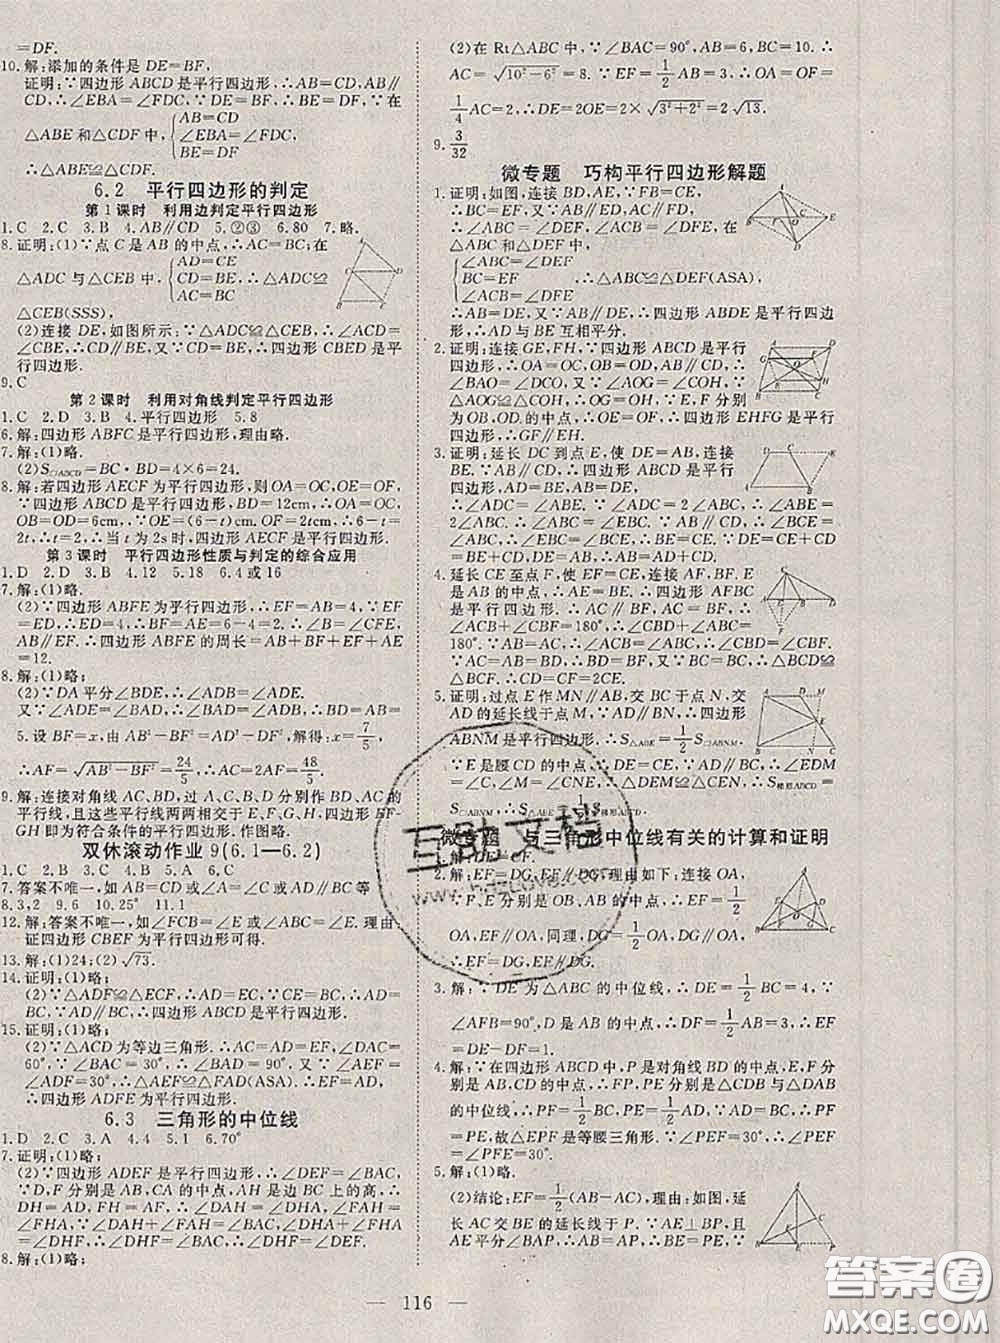 =DF.
10.解:添加的条件是 DE=BF,
证明:∵四边形 ABCD 是平行四边形,∴AB=CD,AB∥
CD,∴∠EBA=∠FDC,∵DE=BF,∴BE=DF,∵在
△ABE 和△CDF 中,{AB=CD
∠EBA=∠FDC,
BE=DF
∴△ABE≌△CDF.
6.2 平行四边形的判定
第1课时 利用边判定平行四边形
1.C 2.C 3.B 4.AB∥CD 5.②③ 6.80 7.略.
8.证明:(1)∵点 C 是 AB 的中点,∴AC=BC;在
△ADC 与△CEB 中,{AD=CE
CD=BE,∴△ADC≌
AC=BC
△CEB(SSS),
(2)连接 DE,如图所示:∵△ADC≌△CEB,∴∠ACD=
∠CBE,∴CD∥BE,又∵CD=BE,∴四边形 CBED 是平
行四边形.
9.C
第2课时 利用对角线判定平行四边形
1.C 2.D 3.B 4.平行四边形 5.8
6.解:四边形 ABFC 是平行四边形,理由略.
7.解:(1)略.
(2)S□ABCD=BC·BD=4×6=24.
8.解:若四边形 AECF 为平行四边形,则 OA=OC,OE=OF,
∵四边形 ABCD 是平行四边形,BD=12cm,∴OA=OC,
OB=OD=6cm,∵OE=(6-t)cm,OF=2tcm,∴6-t=
2t,∴t=2,∴当 t 为 2s 时,四边形 AECF 是平行四边形.
第3课时 平行四边形性质与判定的综合应用
1.D 2.D 3.B 4.12 5.18 6.4 或 16
7.解:(1)略.
(2)∵四边形 ABFE 为平行四边形,∴EF=AB=4,∵EF
=ED,∴ED=4,∴AE=BF=6-4=2,∴∠B=∠CFE,
AB=DC=EF=4,∴四边形 ABFE 的周长=AB+BF+EF+AE
=12.
8.解:(1)略;
(2)∵DA 平分∠BDE,∴∠ADE=∠BAD,
又∵∠ADE=∠BAD,∴∠BAD=∠BAD,∴BD=AB=
5.设 BF=x,由 AB²-BF²=AD²-DF²,解得:x=7/5,
∴AF=√AB²-BF²=24/5,∴AC=2AF=48/5.
9.解:连接对角线 AC、BD,过 A、C、B、D 分别作 BD、AC 的
平行线,且这些平行线两两相交于 E、F、G、H,四边形 EF-
GH 即为符合条件的平行四边形.作图略.
双休滚动作业 9(6.1—6.2)
1.C 2.B 3.C 4.B 5.A 6.C
7.答案不唯一,如 AB=CD 或∠A=∠C 或 AD∥BC 等
8.3,2 9.6 10.25° 11.1
12.解:答案不唯一,如∠FCB=∠E 或∠A=∠E 或.理由:
证四边形 CBEF 为平行四边形可得.
13.解:(1)24;(2)√73.
14.证明:(1)略;
(2)∵△ADF≌△ECF,∴AD=EC,∵CE=BC,∴AD=
BC,∵AD∥BC,∴四边形 ABCD 是平行四边形.
15.证明:(1)略;
(2)∵△ACD 为等边三角形,∴EF⊥AC,∠DAC=
60°,∵∠BAC=30°,∴∠BAD=90°,又∵∠AEF=
∠ADF=30°,∴△AEF≌△FAD(ASA).∴EF=AD.
∴四边形 ADFE 是平行四边形.
6.3 三角形的中位线
1.D 2.C 3.A 4.4 5.1 6.70°
7.证明:(1)略;
(2)∵四边形 ADEF 是平行四边形,∴∠DEF=∠BAC,
∵D、F 分别是 AB,CA 的中点,AH 是边 BC 上的高,∴
DH=AD,FH=AF,∴∠DAH=∠DHA,∠FAH=
∠FHA,∵∠DAH+∠FAH=∠BAC,∠DHA+∠FHA
=∠DHF,∴∠DHF=∠BAC,∴∠DHF=∠DEF.
8.解:(1)略;
(2)在 Rt△ABC 中,∵∠BAC=90°,AB=6,BC=10.∴
AC=√10²-6²=8.∵EF=1/2AB=3.∴OA=OF=
1/4AC=2,∴DE=2OE=2×√3²+2²=2√13.
9.3/32
微专题 巧构平行四边形解题
1.证明:如图,连接 BD,AE,∵FB=CE,
∴BC=EF,又∵AB∥ED,AC∥FD,
∴∠ABC=∠DEF,∠ACB=∠DFE,
在△ABC 和△DEF 中,
{∠ABC=∠DEF
BC=EF,∴△ABC≌△DEF(ASA),
∠ACB=∠DFE
∴AB=DE,又∵AB∥DE,∴四边形 ABDE 是平行四边
形,∴AD 与 BE 互相平分.
2.证明:连接 GE,FH,∵四边形 ABCD 是平行
四边形,∴OA=OC,OB=OD,AB∥CD,∴
∠BAO=∠DCO,又∵∠AOG=∠COH,∴
△AOG≌△COH,∴OG=OH,∵E、F 分别
为 OB、OD,的中点,∴OE=OF,∴四边形 EHFG 是平行
四边形,∴GF∥EH.
3.证明:延长 DC 到点 E,使 DE=AB,连接
BE.∵AB∥CD,AB=DE,∴四边形
ABED 是平行四边形.∴AD=BE,
∴∠ADC=∠ABE.∵∠ADC=2∠ABC,∴∠ABE=
2∠ABC.∴∠ABC=∠EBC.∵AB∥CD,∴∠ABC=
∠ECB.∴∠ECB=∠EBC,∴BE=CE,∵DE=CE+CD
=BE+CD,∴AB=AD+CD.
4.延长 CE 至点 F,使 EF=CE,连接 AF,BF.E
是 AB 的中点,∴AE=BE.∴四边形 AFBC
是平行四边形.∴AC∥BF,AC=BF,∴∠ACB
+∠CBF=180°,∵∠ACB+∠ABC+∠CBD=
180°.∵AB=AC,∴∠ACB=∠ABC,∴∠CBD=∠CBF.
∵AC=BD,∴BF=BD,又∵BC=BC,∴△BCD≌
△BCF.∴CD=CF=2CE.
5.证明:过点 E 作 MN∥AB,交 BC 于点 N,交
AD 的延长线于点 M,∵AD∥BN,∴四边形
ABNM 是平行四边形.∴S△ABE=1/2S□ABNM,
∵E 是腰 CD 的中点,∴DE=CE,∵AM∥BC,∴∠M=
∠MNC,∠M=∠CNE,∴△DEM≌△CEN,∴S梯形ABCD=
S□ABNM,∴S△ABE=1/2S梯形ABCD.
微专题 与三角形中位线有关的计算和证明
1.解:DE=CF.
2.解:EF=DG,EF∥DG.理由如下:连接 OA,
∵F、E 分别是 OB、AB 的中点,∴EF=1/2
OA,EF∥OA,同理,DG=1/2OA,DG∥OA,
∴EF=DG,EF∥DG.
3.解:∵DE 为△ABC 的中位线,∴DE=1/2BC=4.∵
∠AFB=90°,D 是 AB 的中点,∴DF=1/2AB=3,∴EF
=DE-DF=1.
4.解:∵在四边形 ABCD 中,P 是对角线 BD 的中点,E,F 分
别是 AB,CD 的中点,∴FP,PE 分别是△CDB 与△DAB
的中位线,∴PF=1/2BC,PE=1/2AD.∵AD=BC,∴PF=
PE,故△EFP 是等腰三角形.∵∠PEF=30°,∴∠PEF=
∠PFE=30°.
5.解:(1)略.
(2)结论:EF=1/2(AB-AC),理由:如图,延
长 AC 交 BE 的延长线于 P.∵AE⊥BP,且
AE 平分∠BAP,∴△ABP 是等腰三角形,
— 116 —
互助文档
www.hdzuoye.com
答案圈
MXQE.COM